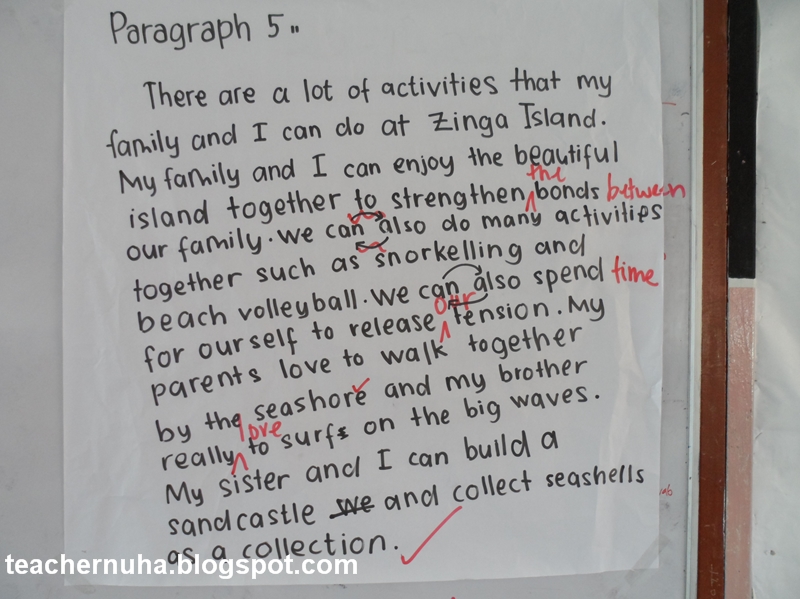 Paragraph 5"
There are a lot of activities that my
family and I can do at Zinga Island.
My family and I can enjoy the beautiful
island together to strengthen the bonds between
our family. We can also do many activities
together such as snorkelling and
beach volleyball. We can also spend time
for ourself to release our tension. My
parents love to walk together
by the seashore and my brother
really love to surfs on the big waves.
My sister and I can build a
sandcastle we and collect seashells
as a collection.
teachernuha.blogspot.com